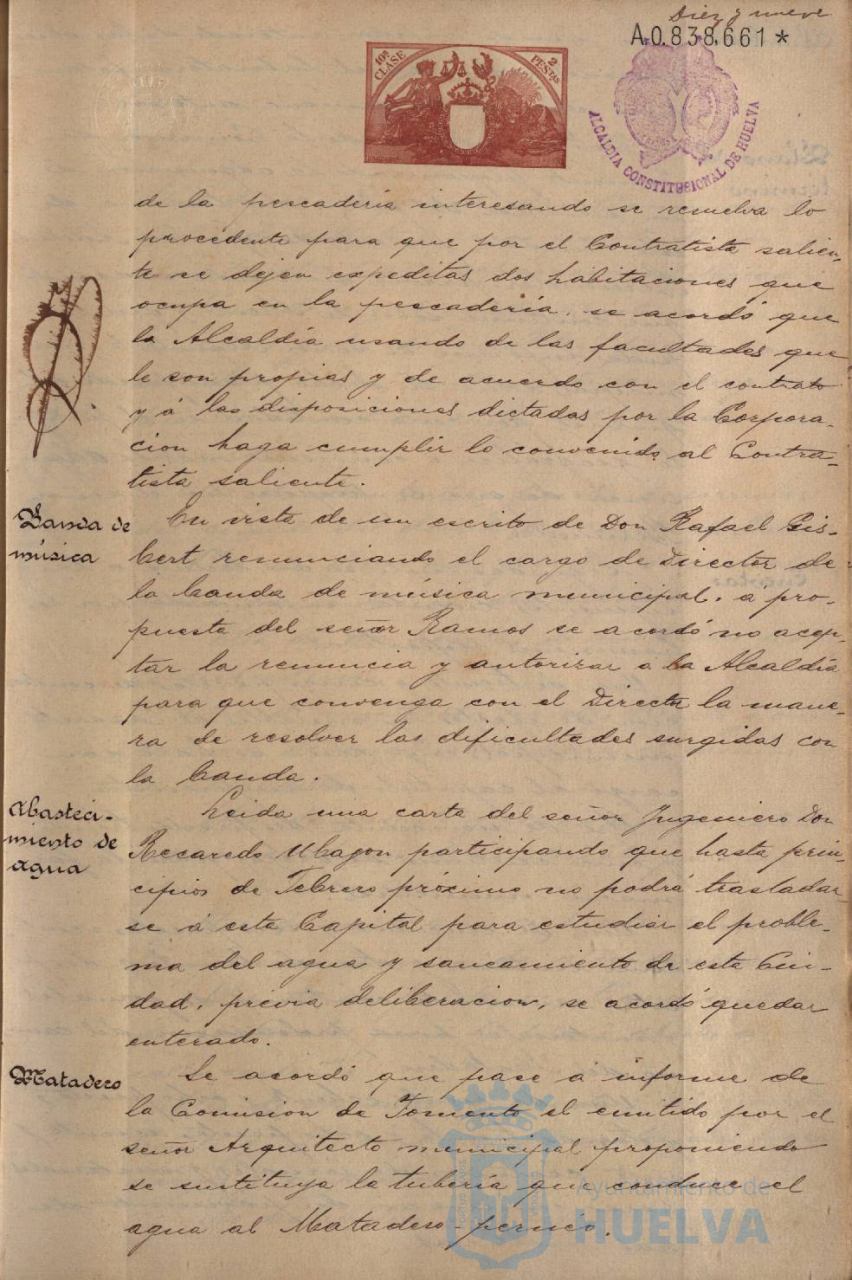 Diez y nueve
A0.838.661*
10ª CLASE
2 PESETAS
ALCALDIA CONSTITUCIONAL DE HUELVA
de la pescadería interesando se resuelva lo
procedente para que por el Contratista salien-
te se dejen expeditas dos habitaciones que
ocupa en la pescadería, se acordó que
la Alcaldía usando de las facultades que
le son propias y de acuerdo con el contrato
y á las disposiciones dictadas por la Corpora-
cion haga cumplir lo convenido al Contra-
tista saliente.
Banda de
música
En vista de un escrito de Don Rafael Gis-
bert renunciando el cargo de Director de
la banda de música municipal, a pro-
puesta del señor Ramos se acordó no acep-
tar la renuncia y autorizar a la Alcaldía
para que convenga con el Director la mane-
ra de resolver las dificultades surgidas con
la banda.
Abasteci-
miento de
agua
Leida una carta del señor Ingeniero Don
Recaredo Ubagon participando que hasta prin-
cipios de Febrero próximo no podrá trasladar
se á esta Capital para estudiar el proble-
ma del agua y saneamiento de esta Ciu-
dad, previa deliberacion, se acordó quedar
enterado.
Matadero
Se acordó que pase á informe de
la Comision de Fomento el emitido por el
señor Arquitecto municipal proponiendo
se sustituya la tubería que conduce el
agua al Matadero
Ayuntamiento de
HUELVA